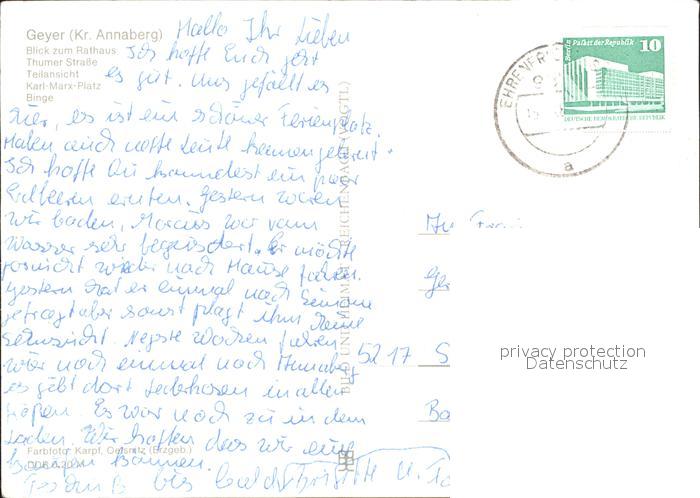 Geyer (Kr. Annaberg)
Blick zum Rathaus
Thumer Straße
Teilansicht
Karl-Marx-Platz
Binge
Hallo Ihr Lieben
Ich hoffe Euch geht
es gut. Uns gefällt es
hier, es ist ein schöner Ferienplatz.
Haben auch nette Leute kennengelernt.
Ich hoffe Du konntest ein paar
Erdbeeren ernten. Gestern waren
wir baden, Marcus war vom
Wasser sehr begeistert. Er möchte
garnicht wieder nach Hause fahren.
Gestern hat er einmal nach
gefragt aber sonst plagt ihn keine
Sehnsucht. Wochen fahren
wir noch einmal nach Annaberg
es gibt dort Lederhosen in allen
Größen. Es war noch zu in dem
Laden. Wir hoffen das wir eine
bekommen können.
bis bald Brigitte u.
Farbfoto: Karpf, Oelsnitz (Erzgeb.)
BILD UND HEIMAT REICHENBACH (VOGTL)
Berlin Palast der Republik 10
DEUTSCHE DEMOKRATISCHE REPUBLIK
a
5217 S
privacy protection
Datenschutz